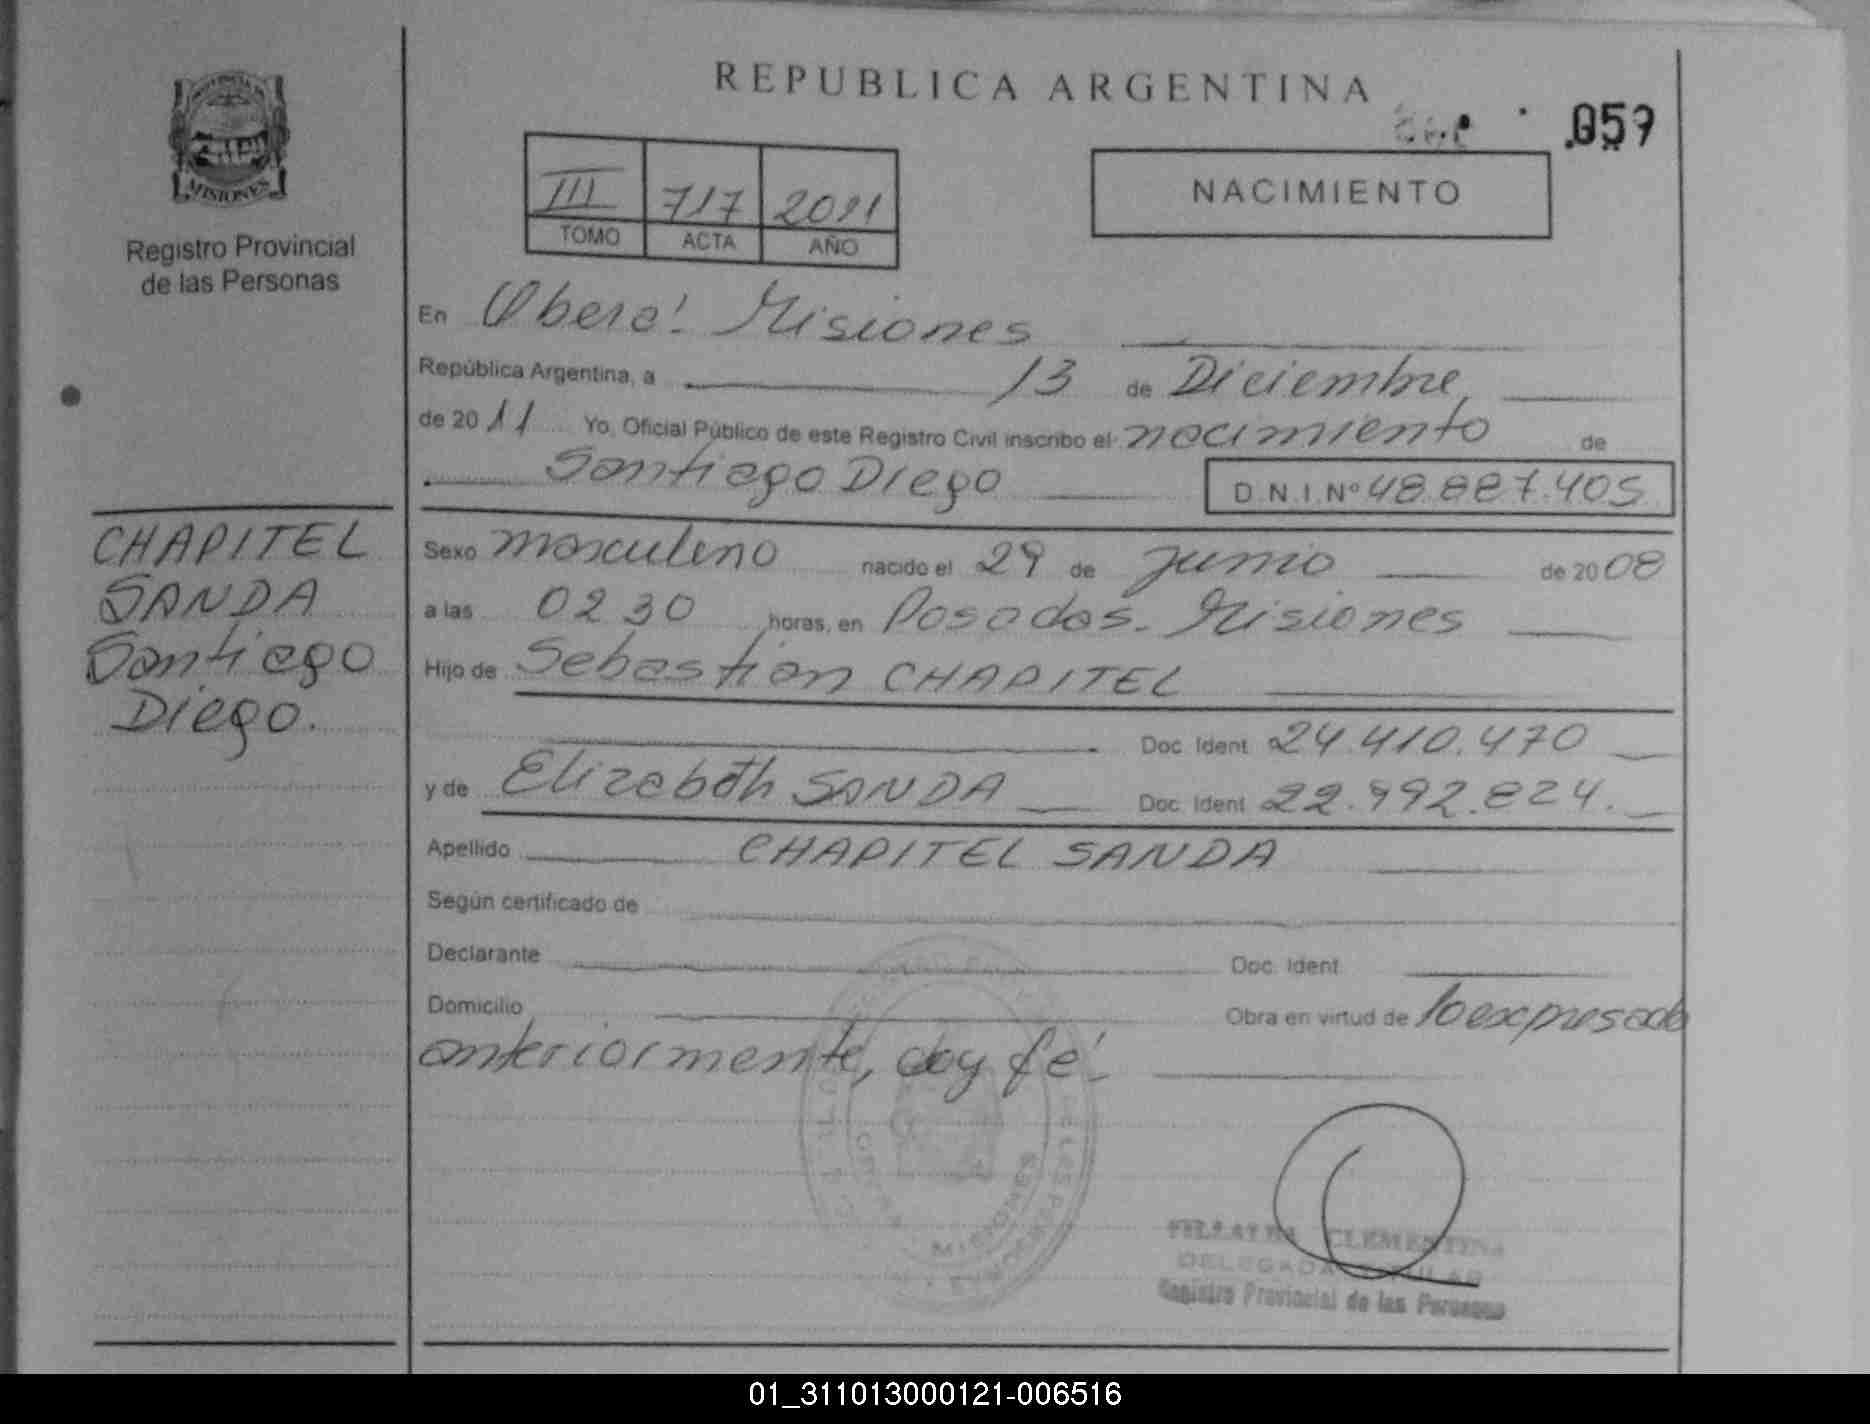 REPUBLICA ARGENTINA
.059
PROVINCIA
MISIONES
Registro Provincial
de las Personas
III 717 2011
TOMO ACTA AÑO
NACIMIENTO
En Oberá! Misiones
República Argentina, a 13 de Diciembre
de 2011 Yo, Oficial Público de este Registro Civil inscribo el nacimiento de
Santiago Diego D.N.I.Nº 48.887.405
CHAPITEL
SANDA
Santiago
Diego.
Sexo masculino nacido el 29 de junio de 2008
a las 02 30 horas, en Posadas. Misiones
Hijo de Sebastian CHAPITEL
Doc. Ident. 24.410.470
y de Elizabeth SANDA Doc. Ident. 22.992.824.
Apellido CHAPITEL SANDA
Según certificado de
Declarante Doc. Ident.
Domicilio Obra en virtud de lo expresado
anteriormente, doy fé.
MISIONES
CLEMENTINA
DELEGADA TITULAR
Registro Provincial de las Personas
01_311013000121-006516